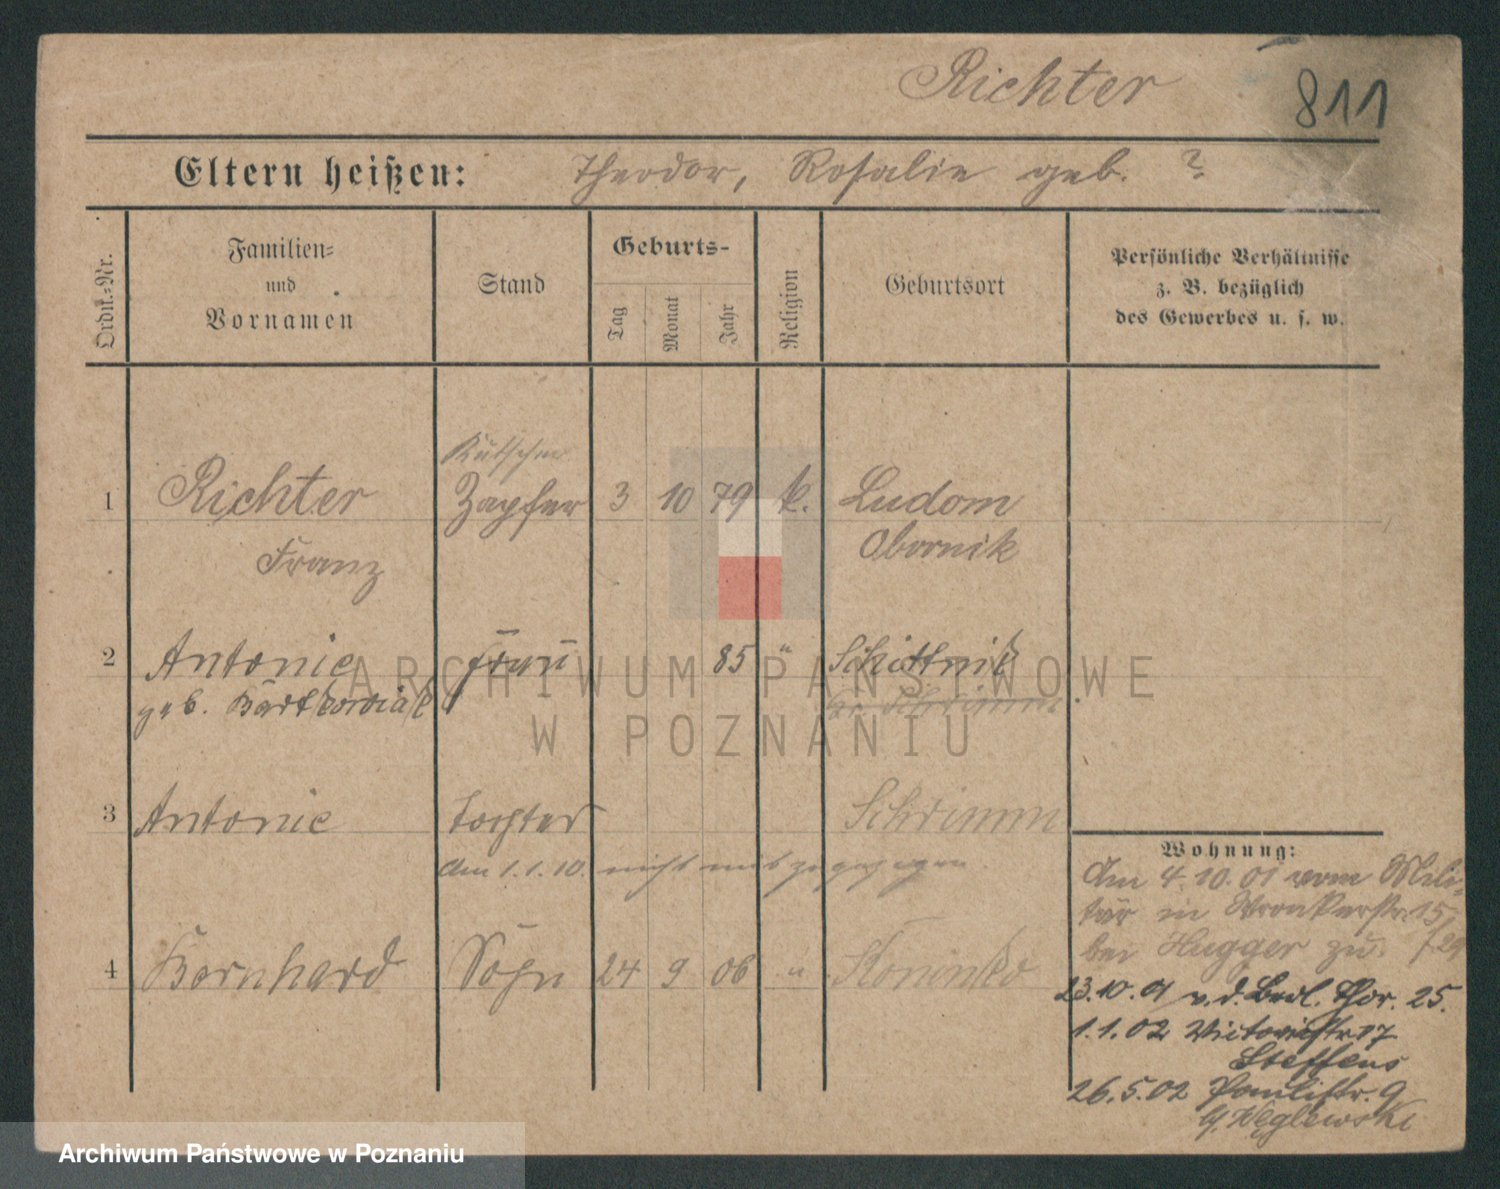 Richter
811
Eltern heißen: Theodor, Rosalie geb. ?
Ordn.-Nr.
Familien-
und
Vornamen
Stand
Geburts-
Tag
Monat
Jahr
Religion
Geburtsort
Persönliche Verhältnisse
z. B. bezüglich
des Gewerbes u. s. w.
Kutscher
1 Richter Zapfer 3 10 79 k. Ludom
Franz Obornik
2 Antonie Frau 85 " Schittnik
geb. Bartkowiak Kr. Schrimm
3 Antonie Tochter Schrimm
am 1.1.10. nicht mit zugezogen.
4 Bernhard Sohn 24 9 06 "
Wohnung:
Am 4.10.01 vom Mili-
tär in Wronkerstr. 15
bei Hugger zu.
23.10.01 v. d. Berl. Thor. 25.
1.1.02 Victoriastr 17
Steffens
26.5.02 Paulistr. 9
b/ Węglewski
ARCHIWUM PAŃSTWOWE
W POZNANIU
Archiwum Państwowe w Poznaniu